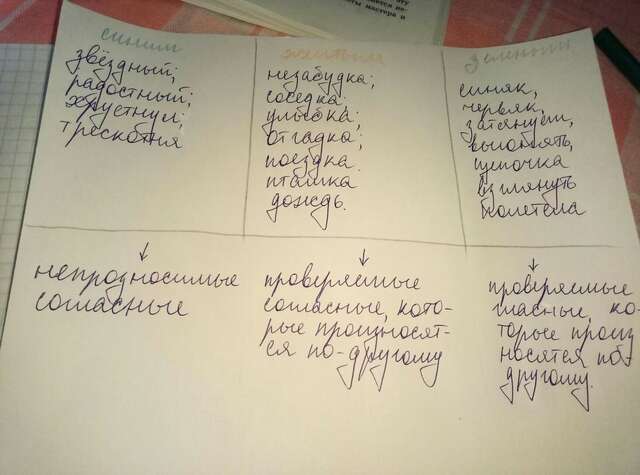 синим
звёздный;
радостный;
хрустнул;
трескотня
жёлтым
незабудка;
соседка;
улыбка;
отгадка;
поездка.
пташка
дождь.
зелёным
синяк,
червяк,
затянуть,
выполоть,
щепочка
взглянуть
полетела
↓
непроизносимые
согласные
↓
проверяемые
согласные, кото-
рые произносят-
ся по-другому
↓
проверяемые
гласные, ко-
торые произ
носятся по-
другому.